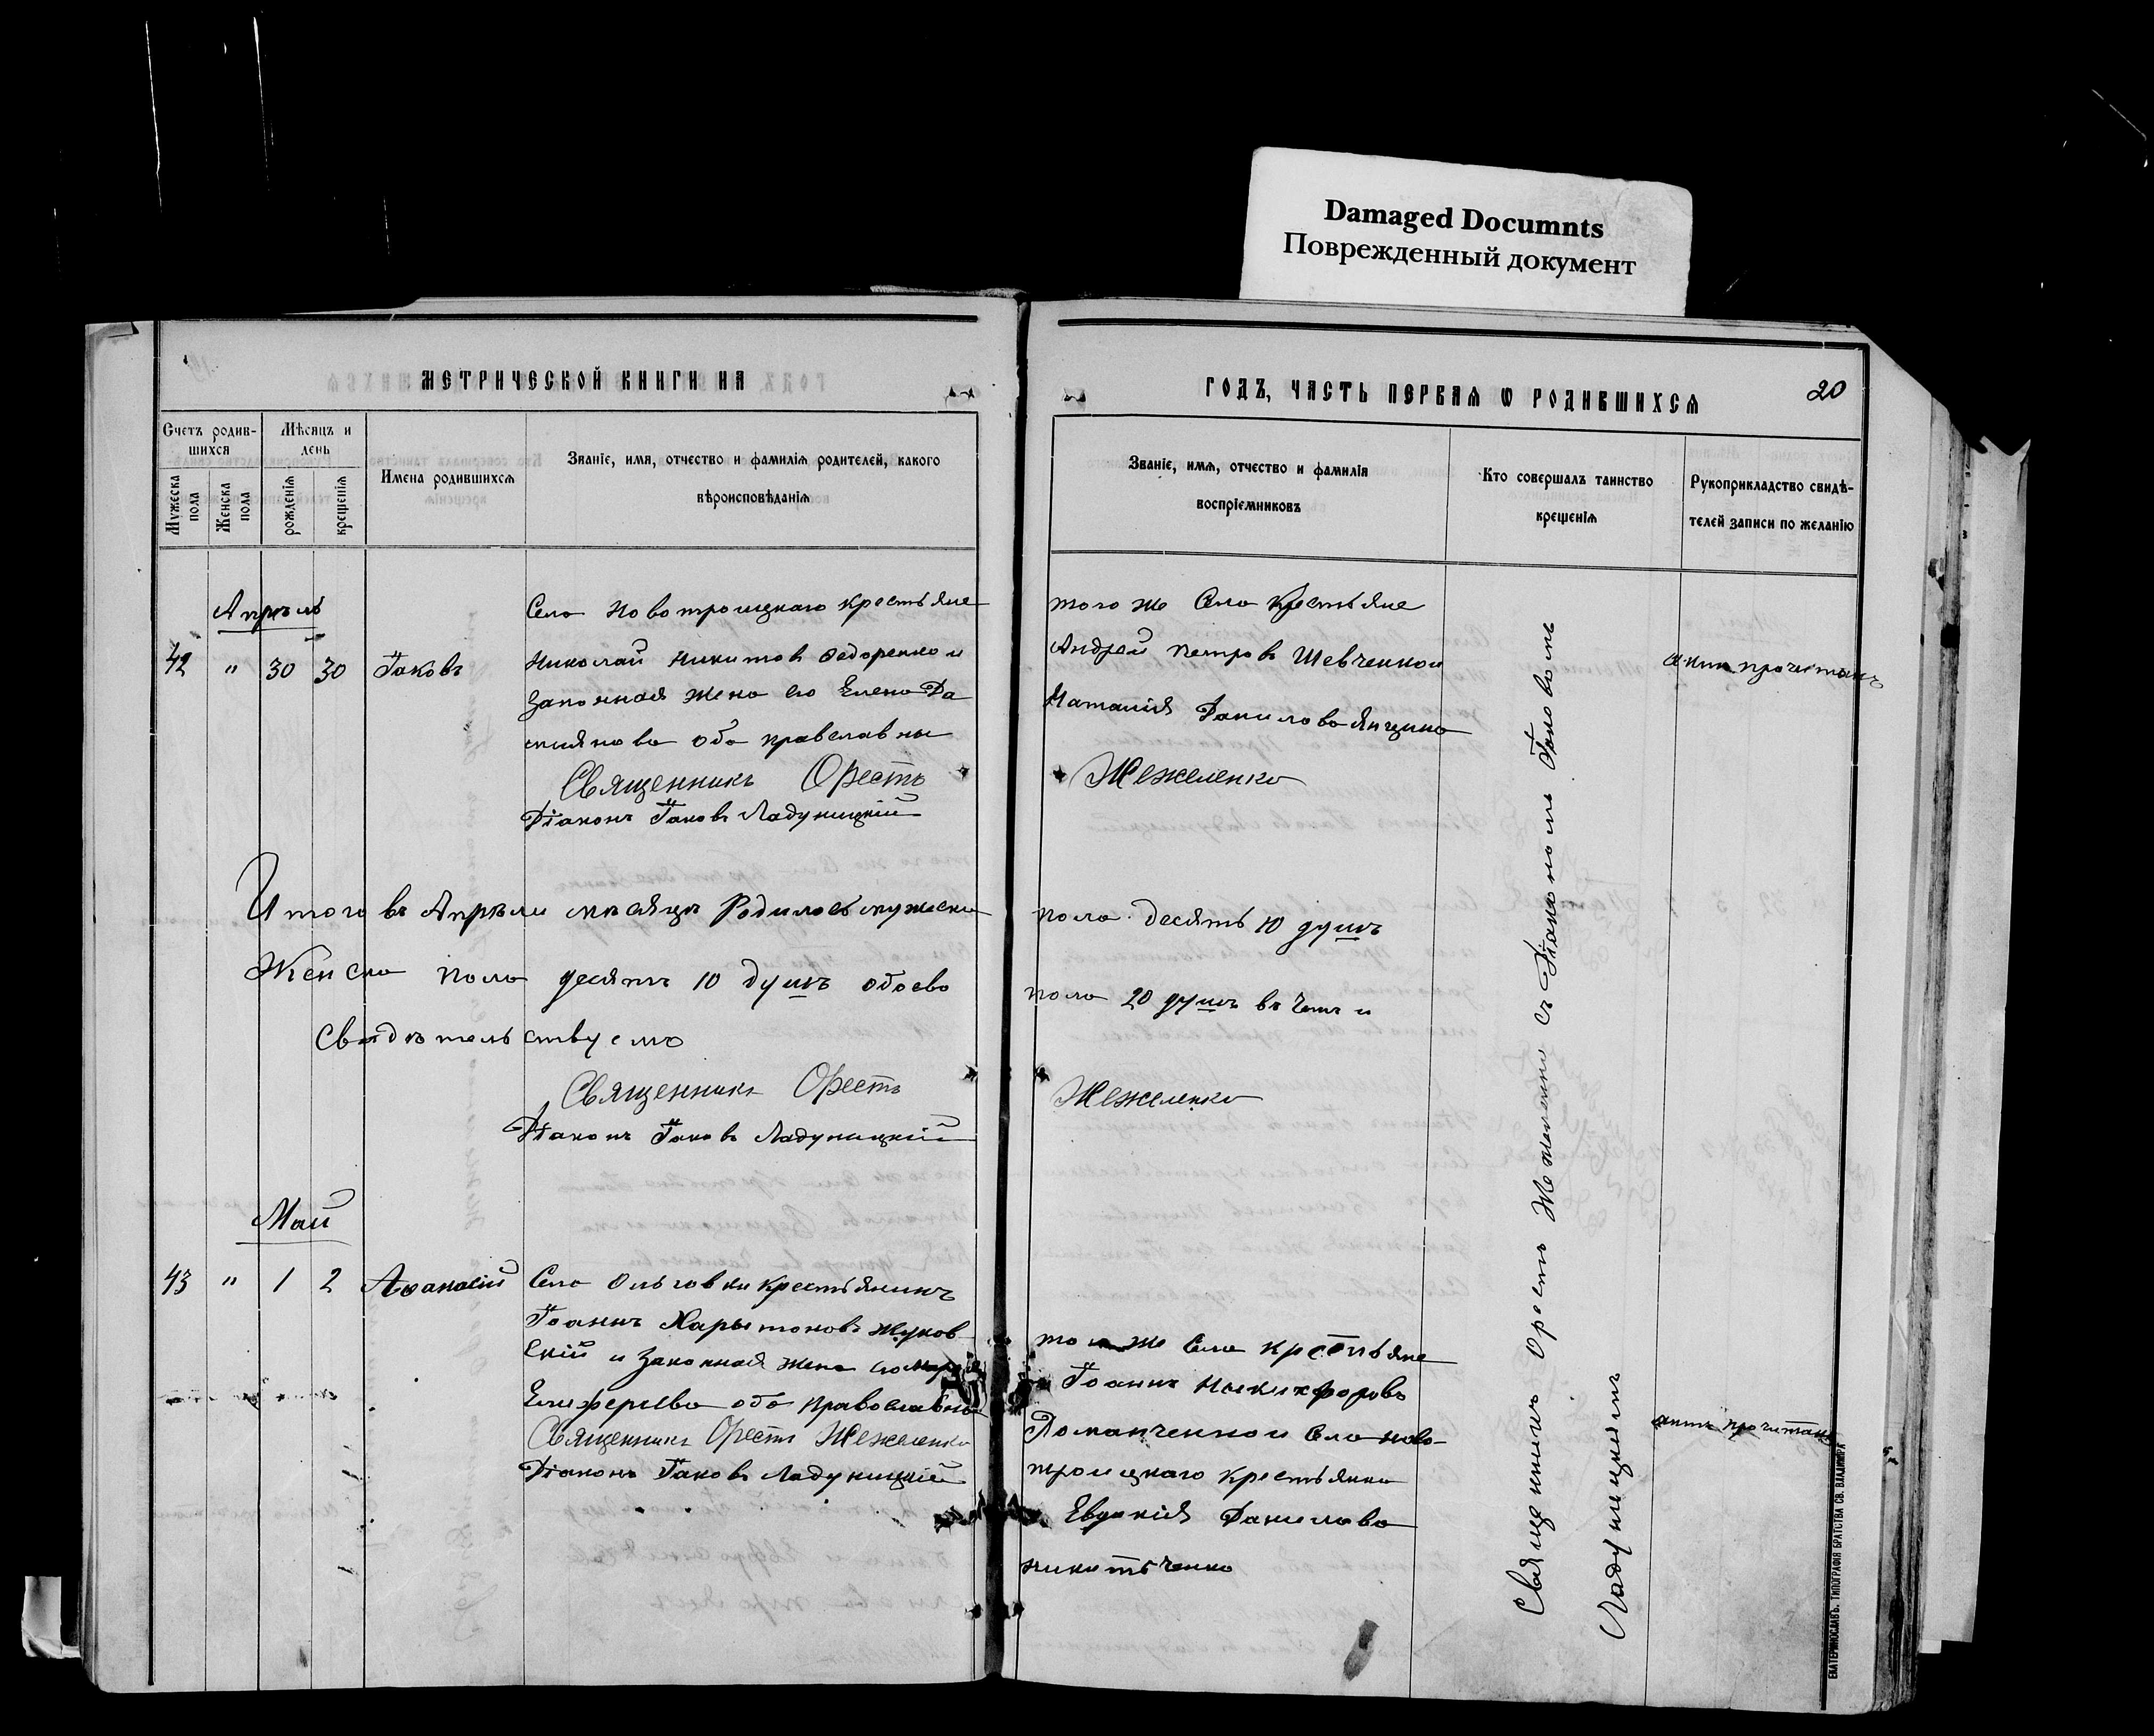 Damaged Documnts
Поврежденный документ
МЕТРИЧЕСКОЙ КНИГИ НА
ГОДЪ, ЧАСТЬ ПЕРВАЯ Ѡ РОДИВШИХСЯ
20
Счетъ родив-
шихся
Мужеска пола
Женска пола
Мѣсяцъ и
день
рожденія
крещенія
Имена родившихся
Званіе, имя, отчество и фамилія родителей, какого
вѣроисповѣданія
Званіе, имя, отчество и фамилія
воспріемниковъ
Кто совершалъ таинство
крещенія
Рукоприкладство свидѣ-
телей записи по желанію
Апрѣль
42 " 30 30 Іаковъ
Села Новотроицкаго крестьяне
Николай Никитовъ Ѳедоренко и
законная жена его Елена Да
міянова оба православны
Священникъ Орестъ
Діаконъ Іаковъ Ладуницкій
того же Села крестьяне
Андрей Петровъ Шевченко и
Наталія Данилова
Жежеленко
актъ прочитанъ
Итого въ Апрѣли мѣсяцѣ Родилось мужеска
пола десять 10 душъ
Женска пола десять 10 душъ обоево
пола 20 душъ въ чемъ и
Свидѣтельствуемъ
Священникъ Орестъ
Жежеленко
Діаконъ Іаковъ Ладуницкій
Май
43 " 1 2 Аѳанасій
Села Ольговки крестьянинъ
Іоаннъ Харитоновъ Жуков
скій и законная жена его
Елиферьева оба православны
Священникъ Орестъ Жежеленко
Діаконъ Іаковъ Ладуницкій
того же Села крестьяне
Іоаннъ Никифоровъ
Романченко и Села Ново-
троицкаго крестьянка
Евдокія Данилова
Никитченко
актъ прочитанъ
Священникъ Орестъ Жежеленко съ Діакономъ Іаковомъ
Ладуницкимъ
ЕКАТЕРИНОСЛАВЪ. ТИПОГРАФІЯ БРАТСТВА СВ. ВЛАДИМІРА